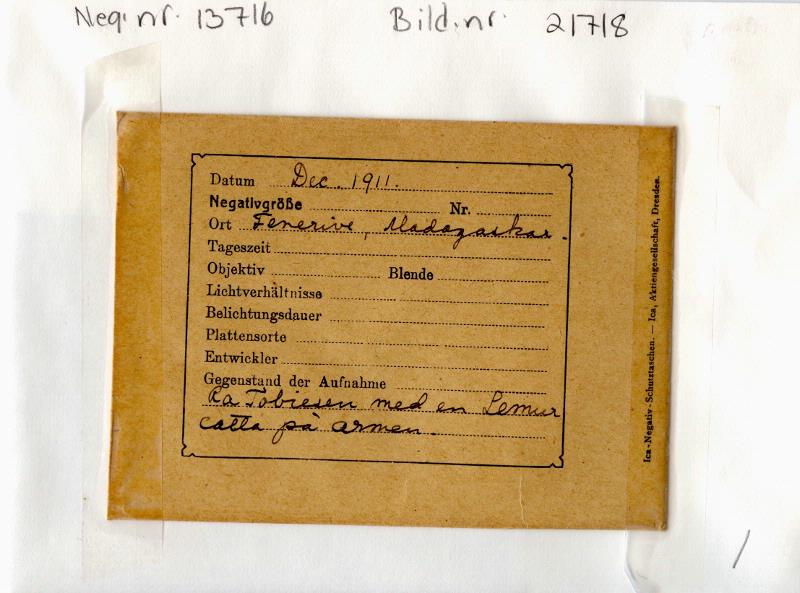 Neg. nr. 13716 Bild. nr. 21718
Datum Dec. 1911.
Negativgröße Nr.
Ort Fenerive, Madagaskar.
Tageszeit
Objektiv Blende
Lichtverhältnisse
Belichtungsdauer
Plattensorte
Entwickler
Gegenstand der Aufnahme
Ra Tobiesen med en Lemur
catta på armen.
Ica-Negativ-Schutztaschen. — Ica, Aktiengesellschaft, Dresden.
/